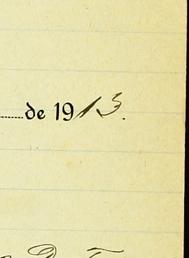 de 1913.